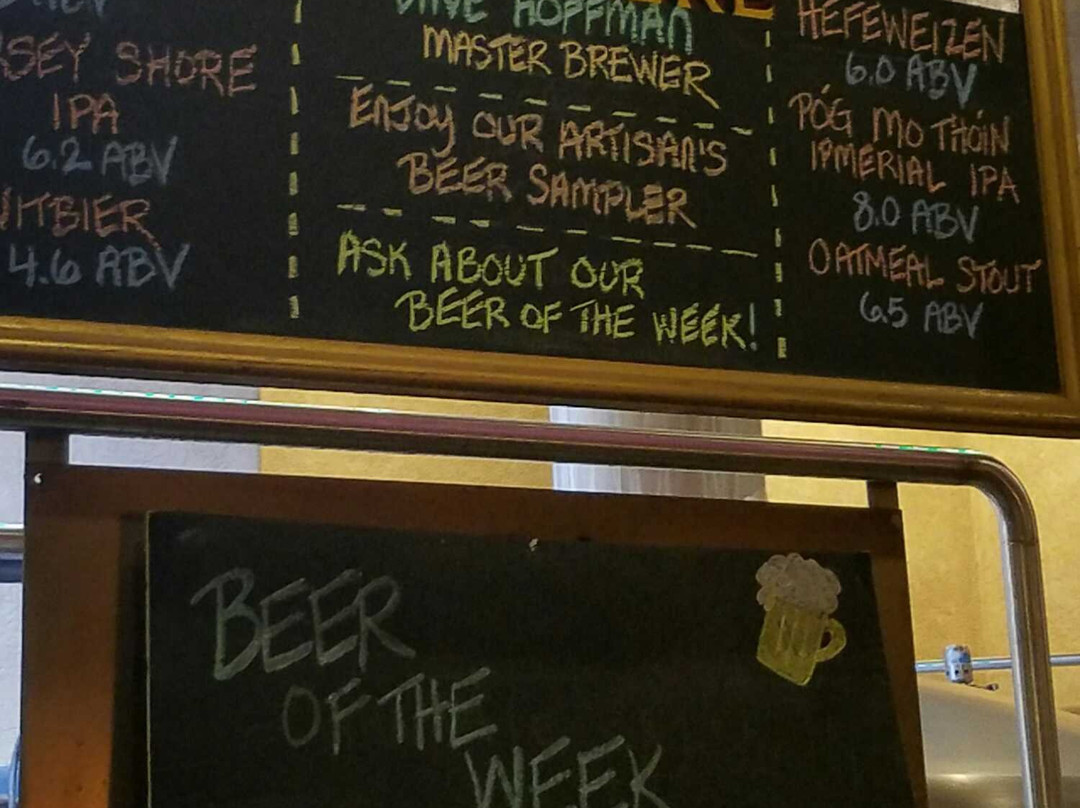 SEY SHORE
IPA
6.2 ABV
WITBIER
4.6 ABV
DAVE HOFFMAN
MASTER BREWER
ENJOY OUR ARTISAN'S
BEER SAMPLER
ASK ABOUT OUR
BEER OF THE WEEK!
HEFEWEIZEN
6.0 ABV
PÓG MO THÓIN
IPMERIAL IPA
8.0 ABV
OATMEAL STOUT
6.5 ABV
BEER
OF THE
WEEK